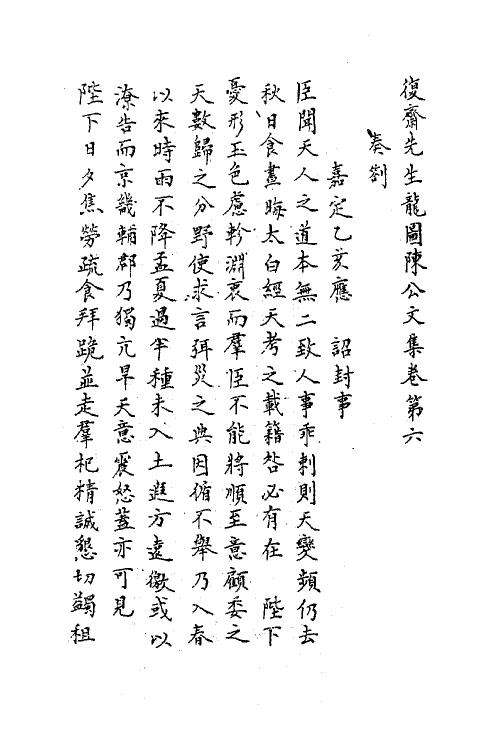 復齋先生龍圖陳公文集卷第六
奏劄
嘉定乙亥應 詔封事
臣聞天人之道本無二致人事乖剌則天變頻仍去
秋日食晝晦太白經天考之載籍咎必有在 陛下
憂形玉色慮軫淵衷而羣臣不能將順至意顧委之
天數歸之分野使求言弭災之典因循不舉乃入春
以來時雨不降孟夏過半種未入土遐方遠徼或以
潦告而京畿輔郡乃獨亢旱天意震怒蓋亦可見
陛下日夕焦勞疏食拜跪並走羣祀精誠懇切蠲租